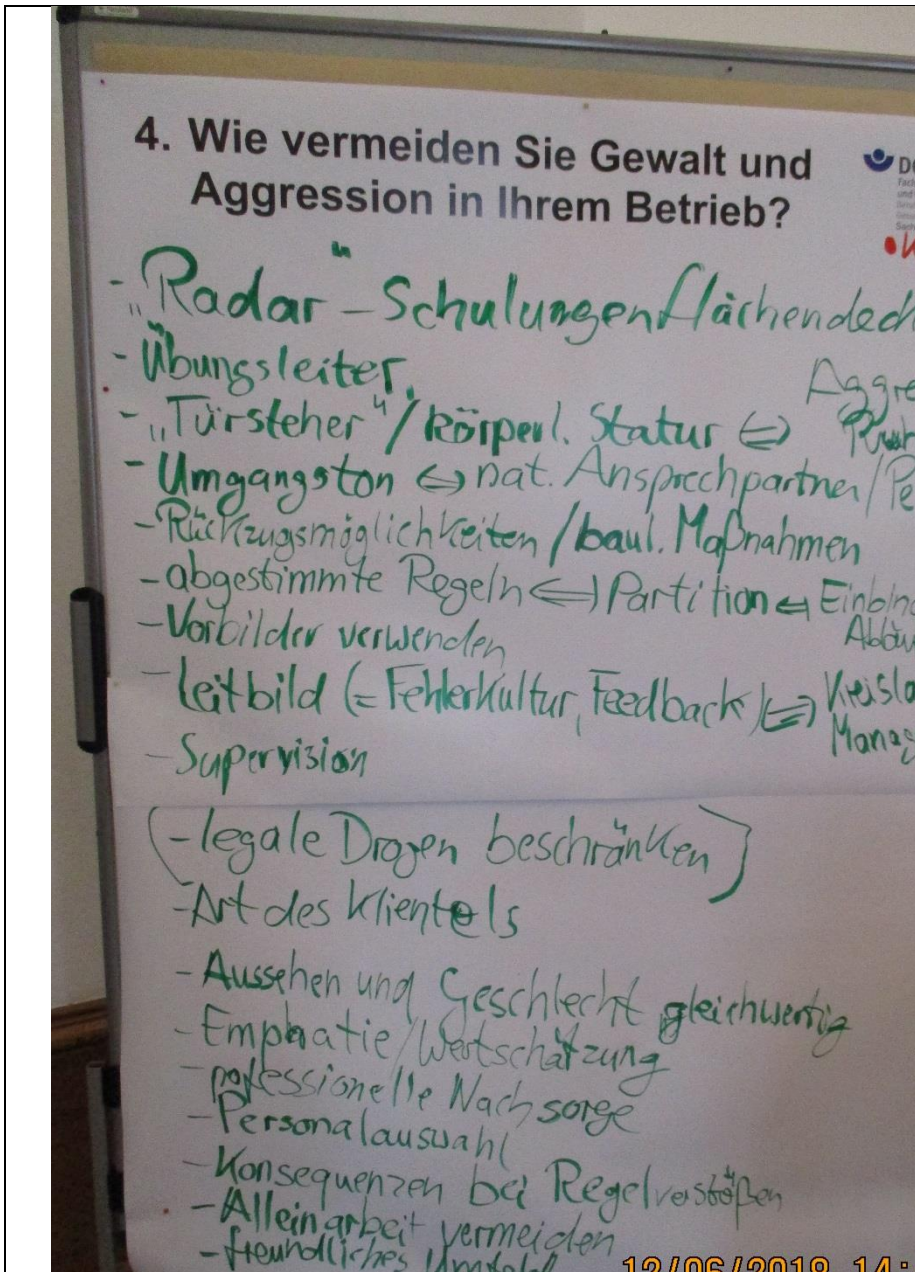 4. Wie vermeiden Sie Gewalt und
Aggression in Ihrem Betrieb?
- „Radar" - Schulungen flächendeck
- Übungsleiter
- „Türsteher" / körperl. Statur ⇔ Aggre
- Umgangston ⇔ nat. Ansprechpartner / Pe
- Rückzugsmöglichkeiten / baul. Maßnahmen
- abgestimmte Regeln ⇔ Partition ⇔ Einbin
Abbau
- Vorbilder verwenden
- Leitbild (= Fehlerkultur, Feedback) ⇔ Kreisla
Manag
- Supervision
(- legale Drogen beschränken)
- Art des Klientels
- Aussehen und Geschlecht gleichwertig
- Emphatie / Wertschätzung
- professionelle Nachsorge
- Personalauswahl
- Konsequenzen bei Regelverstößen
- Alleinarbeit vermeiden
- freundliches Umfeld
12/06/2018 14: